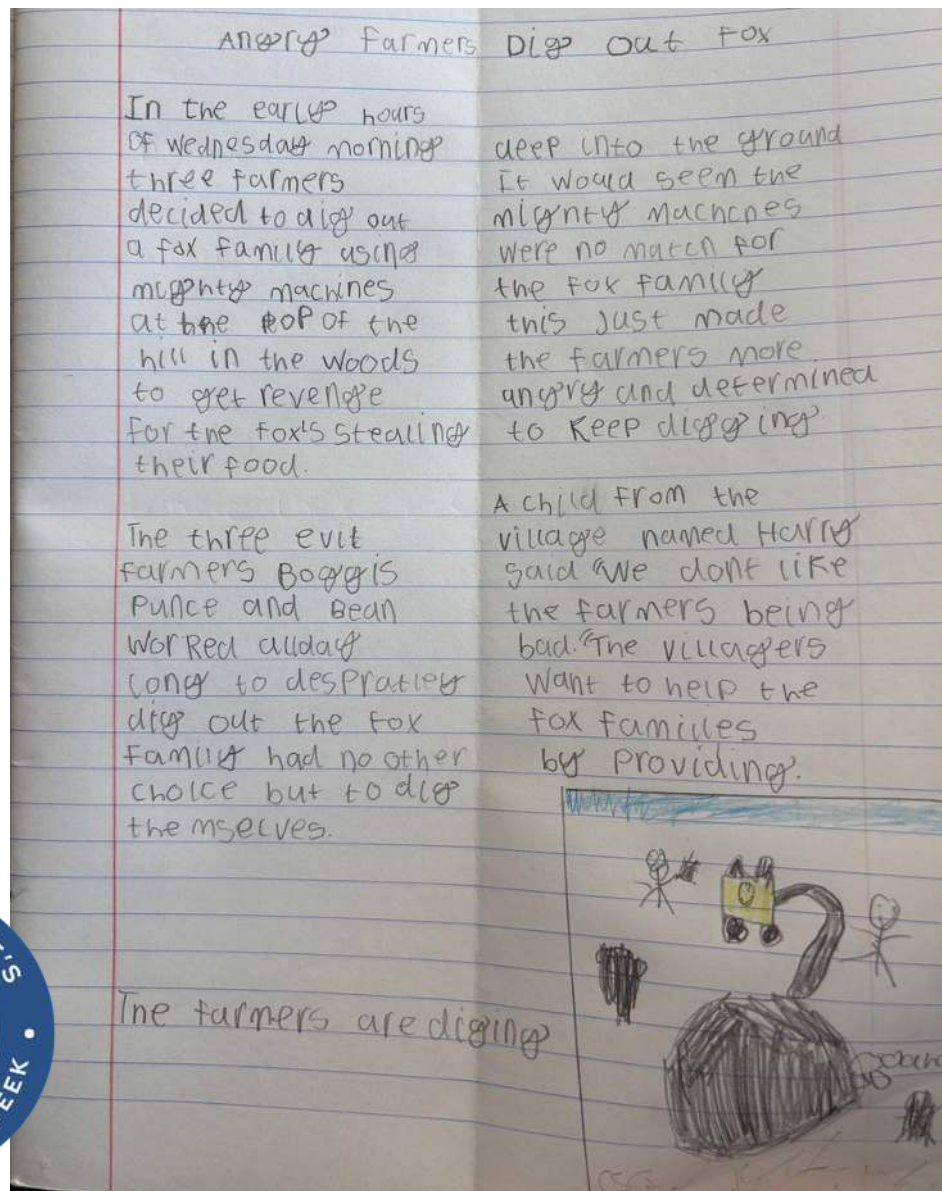 Angry Farmers Dig out Fox
In the early hours
of wednesday morning
three farmers
decided to dig out
a fox family using
mighty machines
at the top of the
hill in the woods
to get revenge
for the fox's stealing
their food.
The three evil
farmers Boggis
Punce and Bean
worked allday
long to despratley
dig out the fox
family had no other
choice but to dig
themselves.
The farmers are diging
deep into the ground
It would seem the
mighty machines
were no match for
the fox family
this just made
the farmers more
angry and determined
to keep digging.
A child from the
village named Harry
said "We dont like
the farmers being
bad." The villagers
want to help the
fox familes
by providing.
EEK